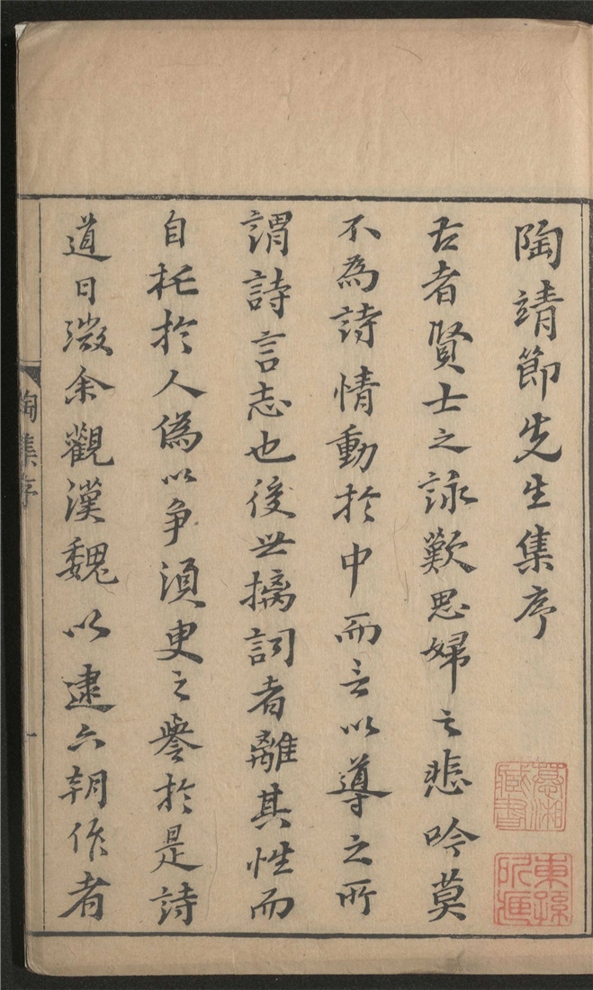 陶靖節先生集序
古者賢士之詠歎思婦之悲吟莫
不為詩情動於中而言以導之所
謂詩言志也後世摛詞者離其性而
自托於人偽以争須臾之譽於是詩
道日漓余觀漢魏以逮六朝作者
陶集序
一
藏書